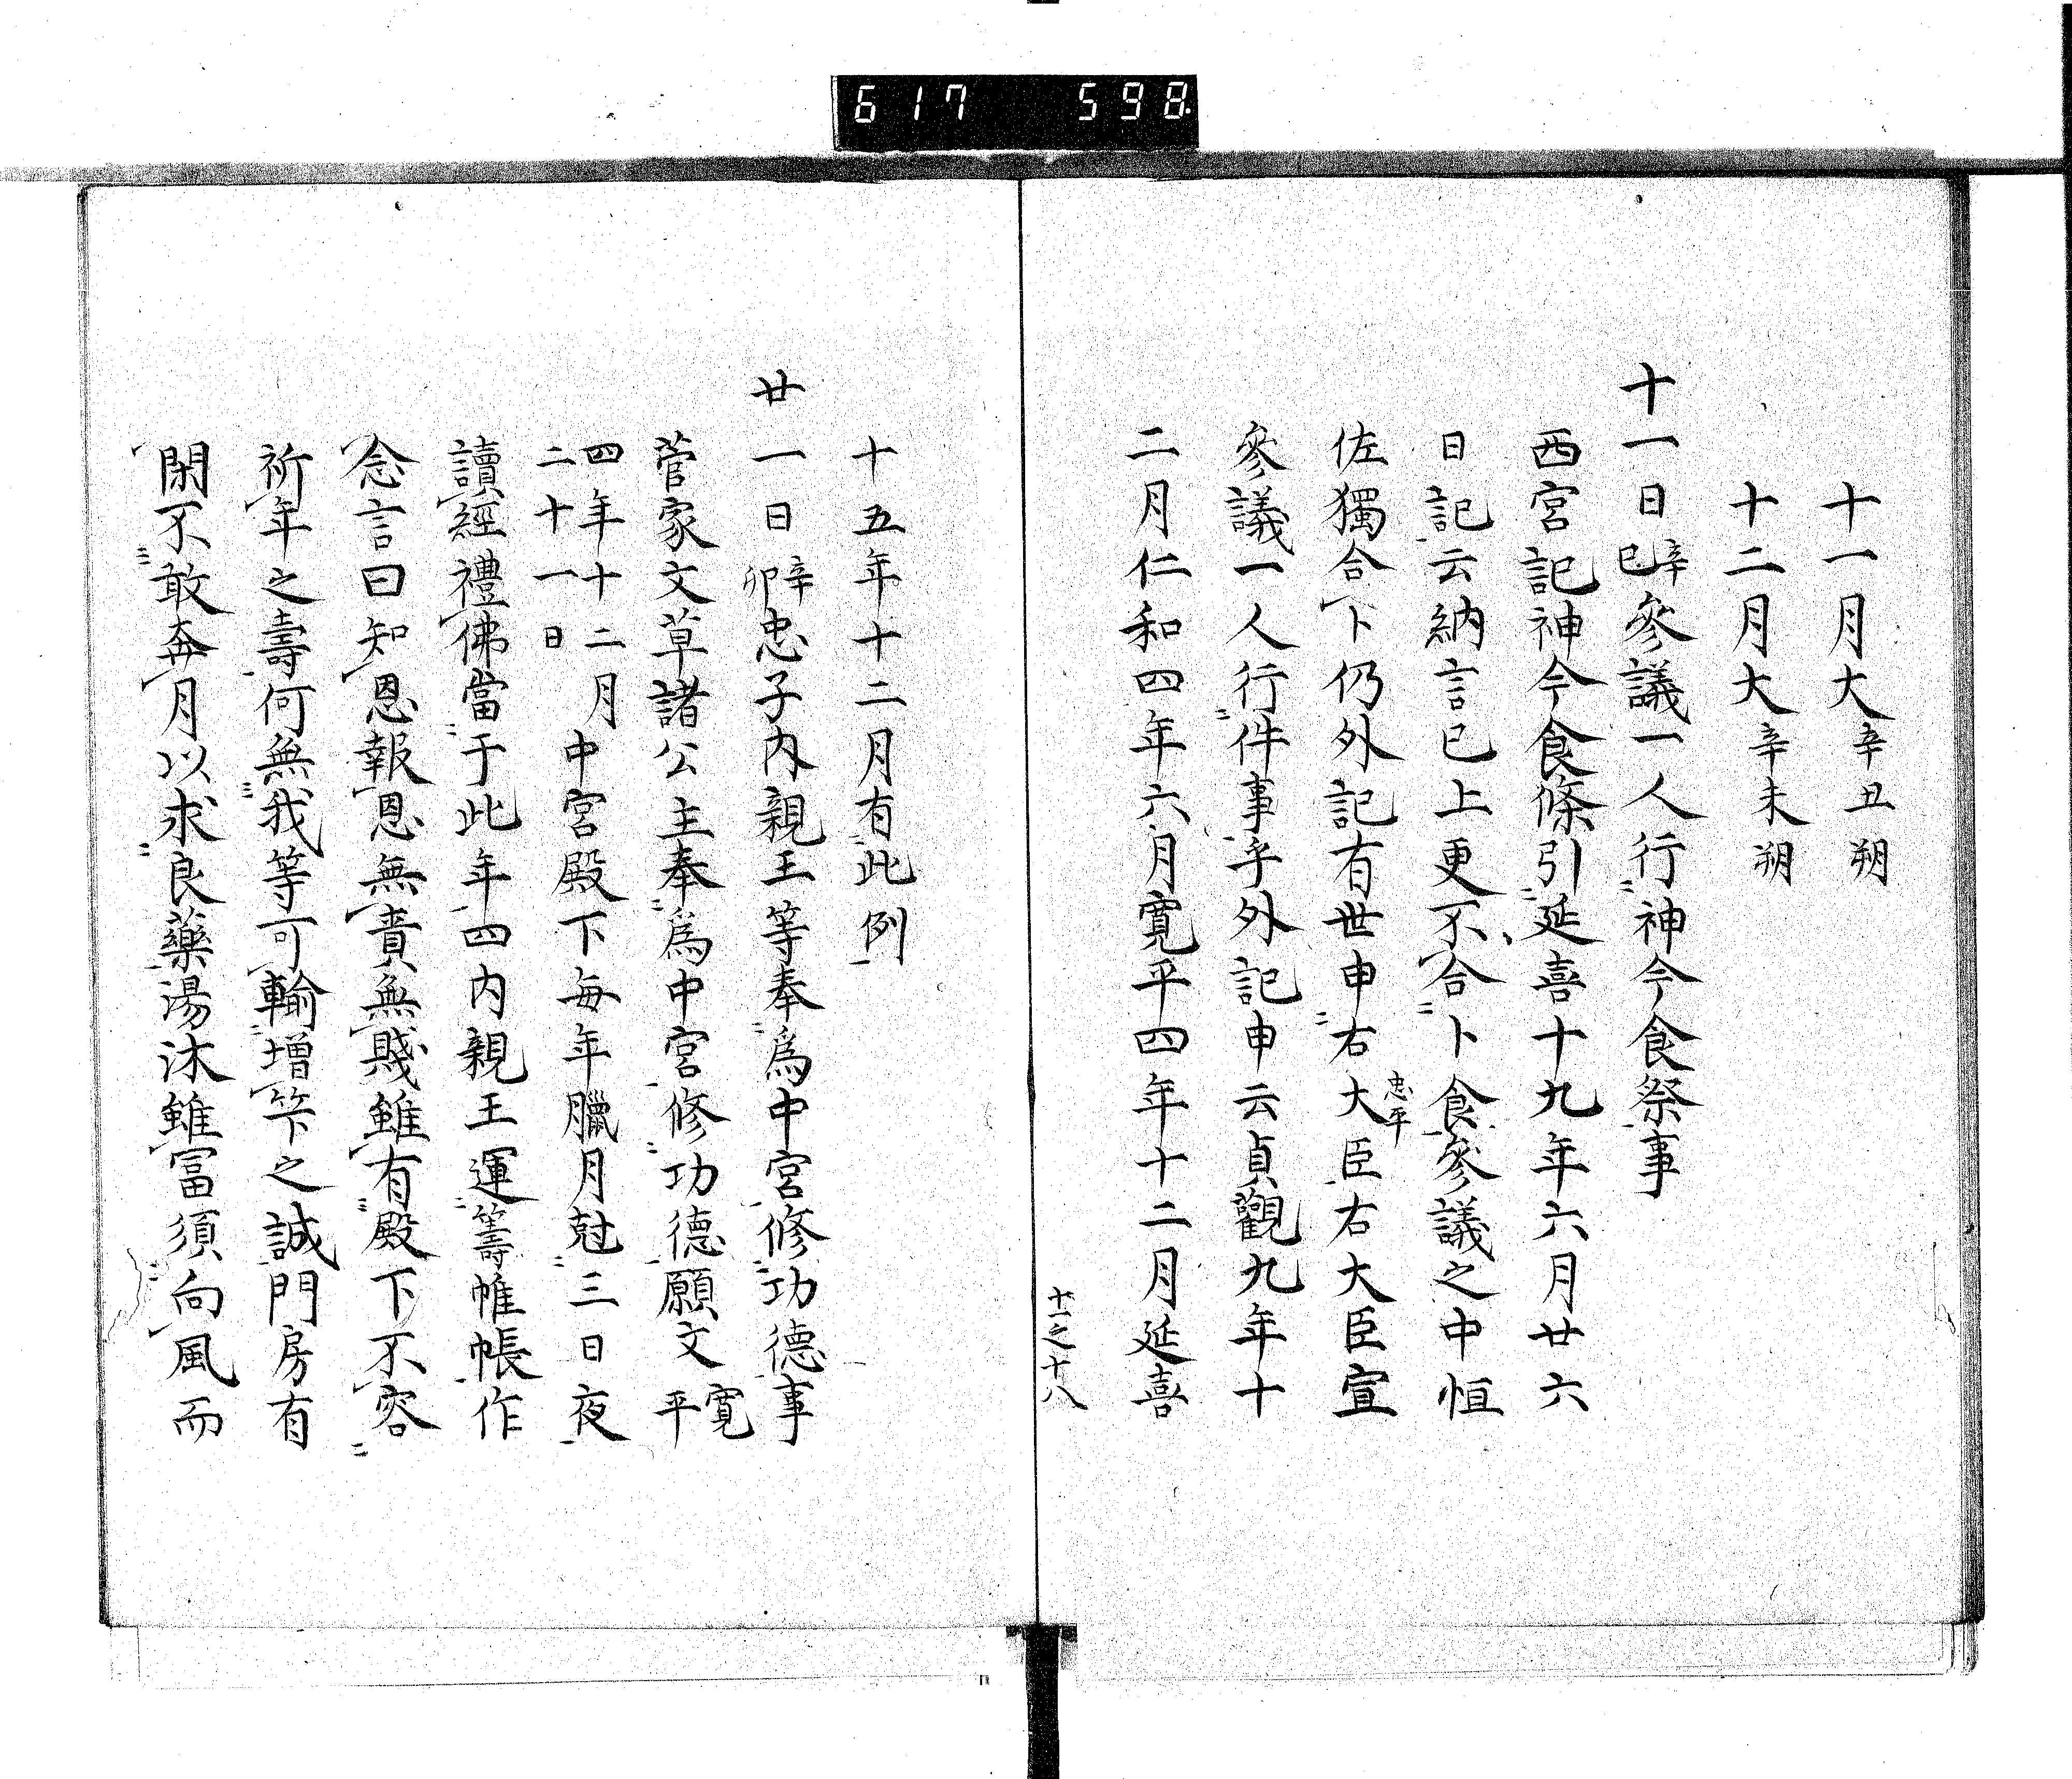 617 598
十一月大辛丑朔
十二月大辛未朔
十一日辛巳參議一人行神今食祭事
西宮記神今食條引延喜十九年六月廿六
日記云納言已上更不合卜食參議之中恒
佐獨合卜仍外記有世申右大臣忠平右大臣宣
參議一人行件事乎外記申云貞觀九年十
二月仁和四年六月寛平四年十二月延喜
十一之十八
十五年十二月有此例
廿一日辛卯忠子内親王等奉爲中宮修功德事
菅家文草諸公主奉爲中宮修功德願文寛平
四年十二月二十一日中宮殿下毎年臘月尅三日夜
讀經禮佛當于此年四内親王運籌帷帳作
念言曰知恩報恩無貴無賤雖有殿下不容
祈年之壽何無我等可輸增竿之誠門房有
閑不敢奔月以求良藥湯沐雖富須向風而